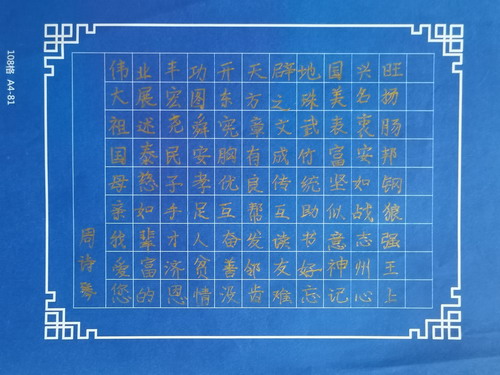 伟业丰功开天辟地国兴旺
大展宏图东方之珠美名扬
祖述尧舜宪章文武表衷肠
国泰民安胸有成竹富安邦
母慈子孝优良传统坚如钢
亲如手足互帮互助似战狼
我辈才人奋发读书意志强
爱富济贫善邻友好神州王
您的恩情没齿难忘记心上
周诗琴
108格 A4-81